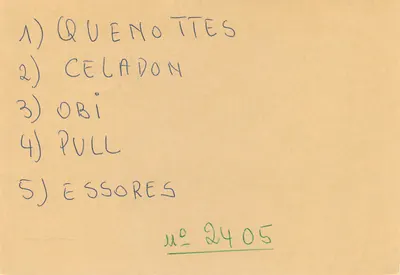 1) QUENOTTES
2) CELADON
3) OBi
4) PULL
5) ESSORES
nº 2405